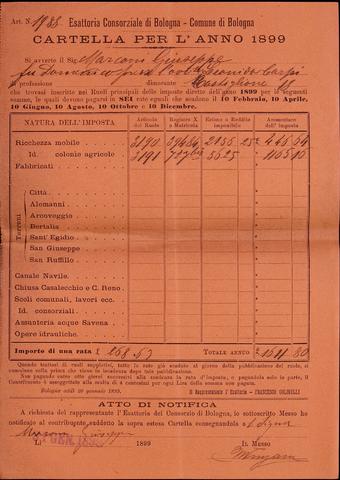 Art. N. 1788 Esattoria Consorziale di Bologna - Comune di Bologna
CARTELLA PER L'ANNO 1899
Si avverte il Sig. Marconi Giuseppe
fu Domenico
di professione dimorante Castiglione
che trovasi inscritto nei Ruoli principali delle imposte dirette dell'anno 1899 per le seguenti
somme, le quali devono pagarsi in SEI rate eguali che scadono il 10 Febbraio, 10 Aprile,
10 Giugno, 10 Agosto, 10 Ottobre e 10 Dicembre.
NATURA DELL'IMPOSTA Articolo del Ruolo Registro N. o Matricola Estimo o Reddito imponibile Ammontare dell'imposta
Ricchezza mobile 3190
Id. colonie agricole 3191
Fabbricati
Terreni
Città
Alemanni
Arcoveggio
Bertalia
Sant'Egidio
San Giuseppe
San Ruffillo
Canale Navile.
Chiusa Casalecchio e C. Reno
Scoli comunali, lavori ecc.
Id. consorziali
Assunteria acque Savena
Opere idrauliche.
Importo di una rata £ 268.63 TOTALE ANNUO £ 1611.80
Quando trattasi di ruoli suppletivi, tutte le rate già scadute al giorno della pubblicazione del ruolo, si
cumulano colla prima che viene in iscadenza dopo tale pubblicazione.
Non pagando entro otto giorni successivi alla scadenza la rata d'imposta, o pagandola solo in parte, il
Contribuente è assoggettato alla multa di 4 centesimi per ogni Lira della somma non pagata.
Bologna addì 20 gennaio 1899.
Il Rappresentante l'Esattoria - FRANCESCO COLINELLI
ATTO DI NOTIFICA
A richiesta del rappresentante l'Esattoria del Consorzio di Bologna, io sottoscritto Messo ho
notificato al contribuente suddetto la sopra estesa Cartella consegnandola a
Marconi Giuseppe
Lì GEN. 1899
IL MESSO